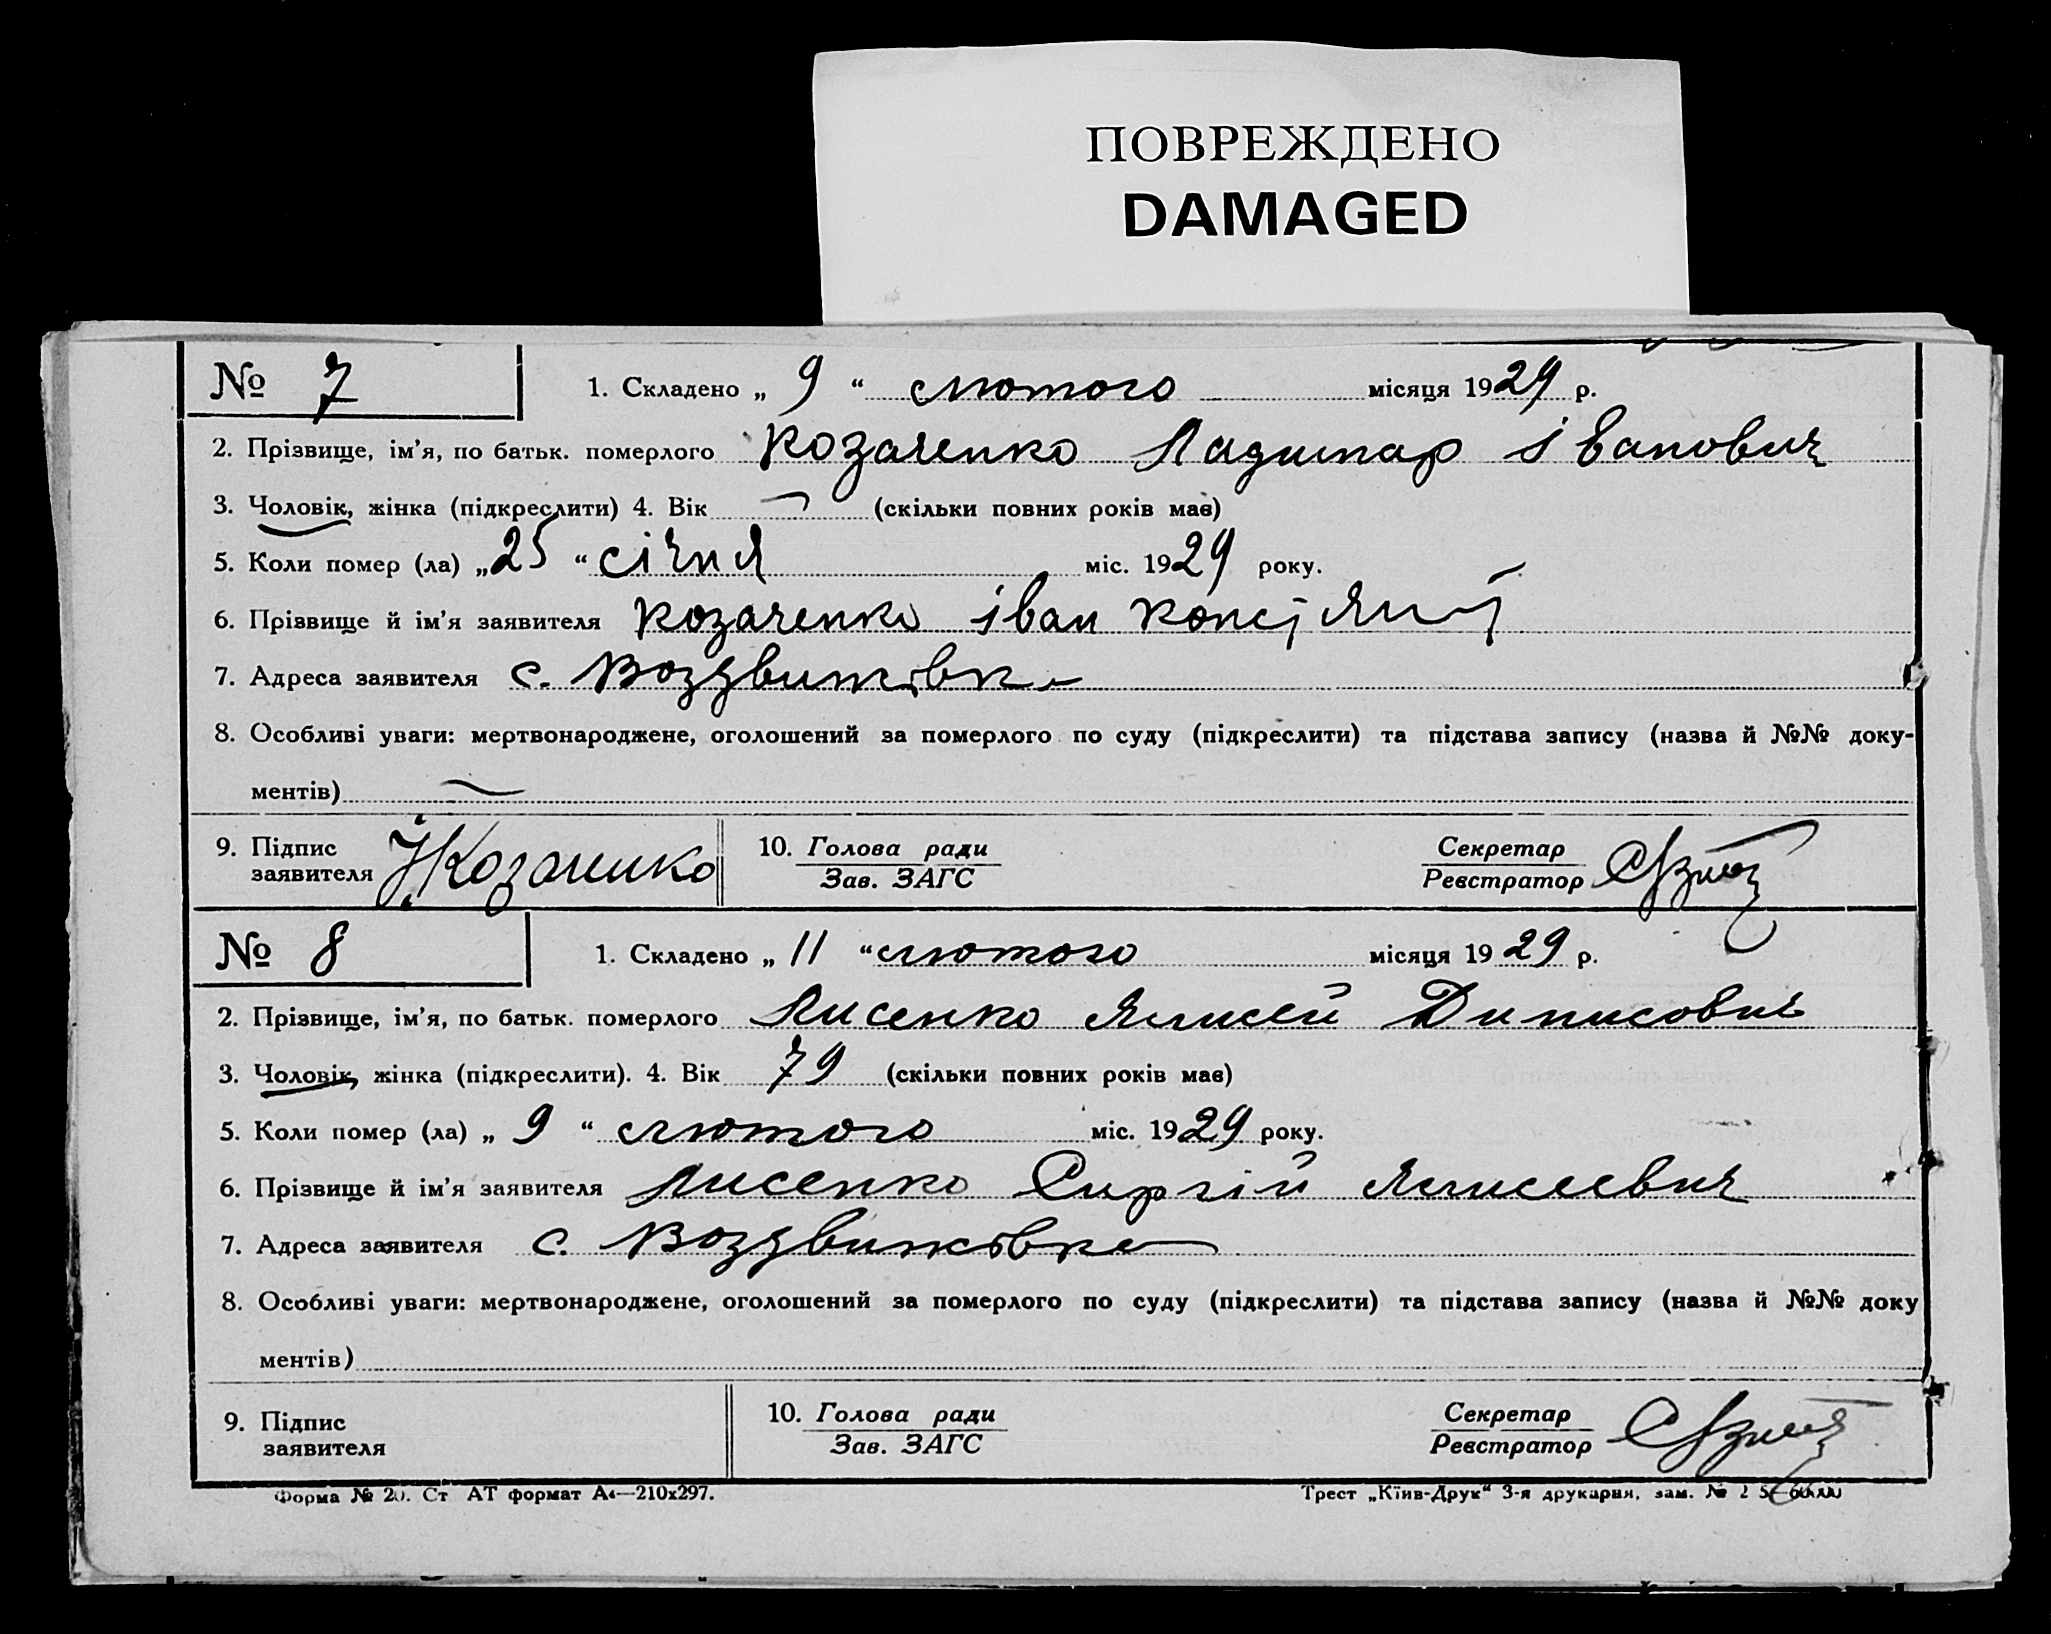 ПОВРЕЖДЕНО
DAMAGED
№ 7 1. Складено „ 9 “ лютого місяця 1929 р.
2. Прізвище, ім'я, по батьк. померлого Козаченко Ладимар Іванович
3. Чоловік, жінка (підкреслити) 4. Вік (скільки повних років має)
5. Коли помер (ла) „25 “ січня міс. 1929 року.
6. Прізвище й ім'я заявителя Козаченко Іван
7. Адреса заявителя с. Воздвижівка
8. Особливі уваги: мертвонароджене, оголошений за померлого по суду (підкреслити) та підстава запису (назва й №№ доку-
ментів) —
9. Підпис заявителя Козаченко 10. Голова ради Зав. ЗАГС Секретар Реєстратор
№ 8 1. Складено „ 11 “ лютого місяця 1929 р.
2. Прізвище, ім'я, по батьк. померлого Лисенко Ялисей Динисович
3. Чоловік, жінка (підкреслити). 4. Вік 79 (скільки повних років має)
5. Коли помер (ла) „ 9 “ лютого міс. 1929 року.
6. Прізвище й ім'я заявителя Лисенко Сиргій Ялисеевич
7. Адреса заявителя с. Воздвижівка
8. Особливі уваги: мертвонароджене, оголошений за померлого по суду (підкреслити) та підстава запису (назва й №№ доку
ментів)
9. Підпис заявителя 10. Голова ради Зав. ЗАГС Секретар Реєстратор
Форма № 20. Ст АТ формат А4—210х297. Трест „Київ-Друк“ 3-я друкарня, зам. №